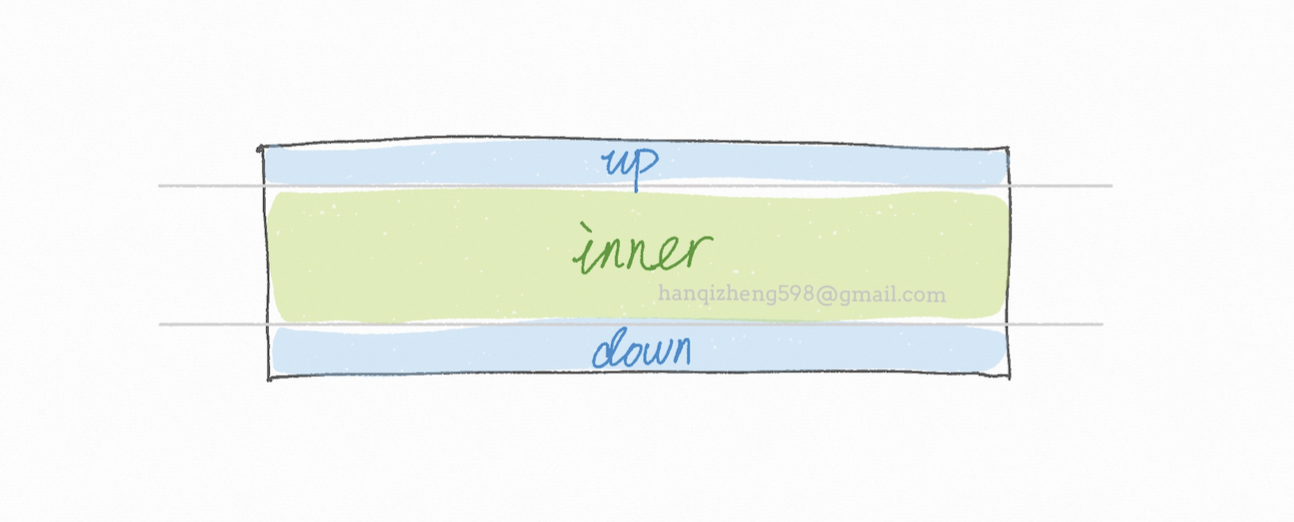 up
inner
hanqizheng598@gmail.com
down